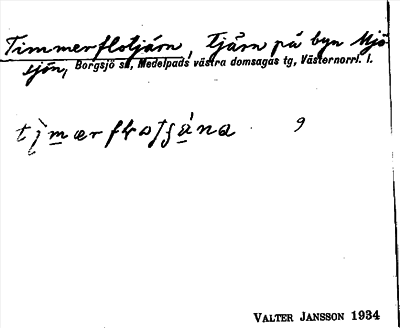 Timmerflotjärn, tjärn på byn Mjö
sjön, Borgsjö sn, Medelpads västra domsagas tg, Västernorrl. l.
9
VALTER JANSSON 1934